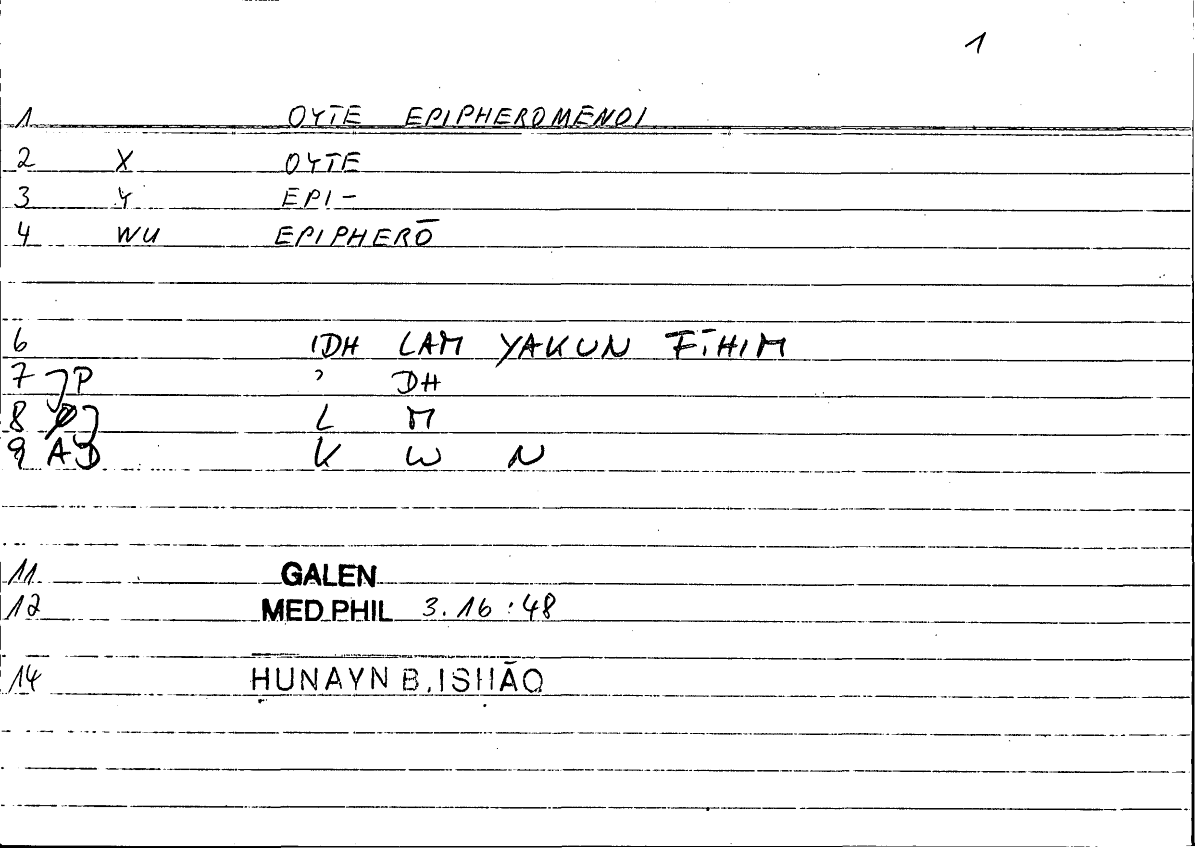 1
1 OYTE EPIPHEROMENOI
2 X OYTE
3 Y EPI-
4 WU EPIPHERŌ
6 IDH LAM YAKUN FĪHIM
7 JP ʾ DH
8 J L M
9 AD K W N
11 GALEN
12 MED.PHIL 3.16:48
14 ḤUNAYN B. ISḤĀQ